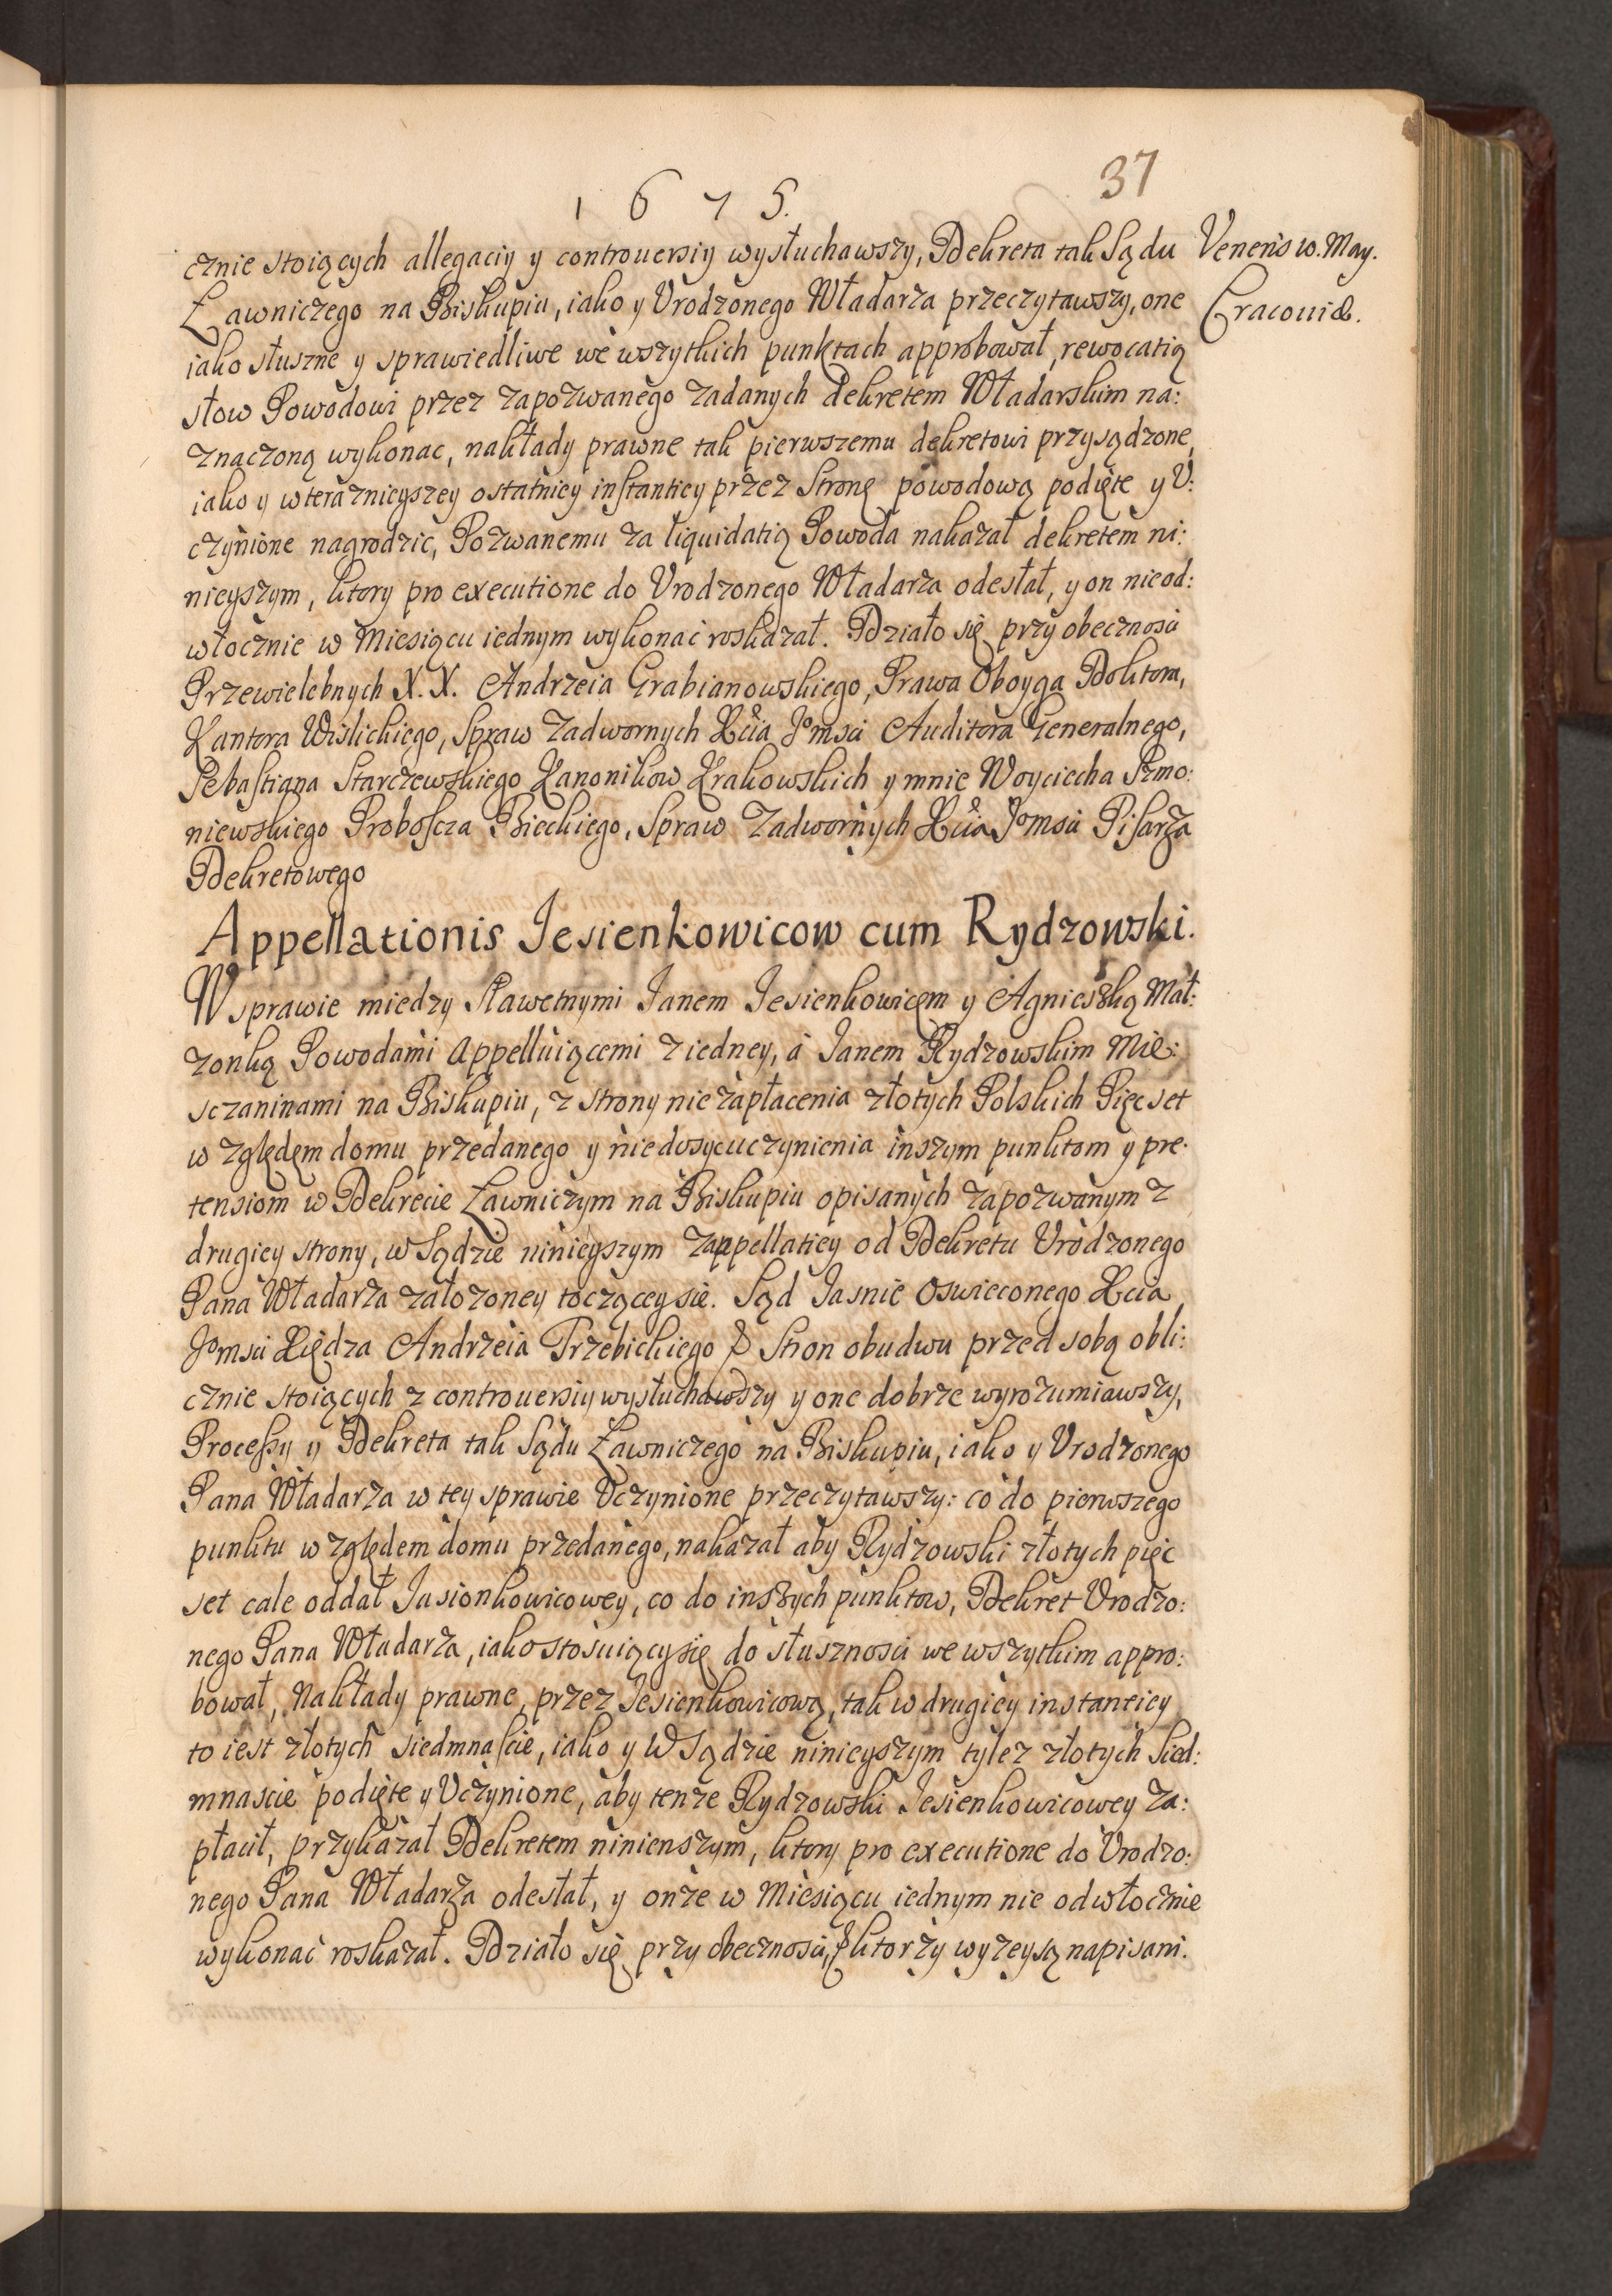 37
1675.
cznie stoiących allegaciy y controuersiy wysłuchawszy, Dekreta tak Sądu
Veneris 10. May.
Ławniczego na Biskupiu, iako y Vrodzonego Władarza przeczytawszy, one
Cracouiæ.
iako słuszne y sprawiedliwe we wszytkich punktach approbował, rewocatią
słow Powodowi przez zapozwanego zadanych dekretem Władarskim na:
znaczoną wykonac, nakłady prawne tak pierwszemu dekretowi przysądzone,
iako y w teraznieyszey ostatniey instantiey przez Stronę powodową podięte y V:
czynione nagrodzic, Pozwanemu za liquidatią Powoda nakazał dekretem ni:
nieyszym, ktory pro executione do Vrodzonego Władarza odesłał, y on nieod:
włocznie w Miesiącu iednym wykonać roskazał. Działo się przy obecznosci
Przewielebnych X.X. Andrzeia Grabianowskiego, Prawa Oboyga Doktora,
Kantora Wislickiego, Spraw Zadwornych Xcia Jomsci Auditora Generalnego,
Sebastiana Starczewskiego Kanonikow Krakowskich y mnie Woyciecha Szmo:
niewskiego Proboscza Bieckiego, Spraw Zadwornych Xcia Jomsci Pisarza
Dekretowego
Appellationis Jesienkowicow cum Rydzowski.
W sprawie miedzy Sławetnymi Janem Jesienkowicem y Agnieszką Mał:
zonką Powodami Appelluiącemi z iedney, á Janem Rydzowskim Mie:
sczaninami na Biskupiu, z strony nie zapłacenia złotych Polskich Pięcset
w zględem domu przedanego y niedosycuczynienia inszym punktom y pre:
tensiom w Dekrecie Ławniczym na Biskupiu opisanych zapozwanym z
drugiey strony, w Sądzie ninieyszym zappellatiey od Dekretu Vrodzonego
Pana Władarza założoney toczącey sie. Sąd Jasnie Oswieconego Xcia
Jomsci Xiędza Andrzeia Trzebickiego & Stron obudwu przed sobą obli:
cznie stoiących z controuersiy wysłuchawszy y one dobrze wyrozumiawszy,
Processy y Dekreta tak Sądu Ławniczego na Biskupiu, iako y Vrodzonego
Pana Władarza w tey sprawie Vczynione przeczytawszy: co do pierwszego
punktu w zględem domu przedanego, nakazał aby Rydzowski złotych pięc
set cale oddał Jasionkowicowey, co do inszych punktow, Dekret Vrodzo:
nego Pana Władarza, iako stosuiący się do słusznosci we wszytkim appro:
bował, Nakłady prawne, przez Jesienkowicową, tak w drugiey instantiey
to iest złotych siedmnascie, iako y W Sądzie ninieyszym tylez złotych Sied:
mnascie podięte y Vczynione, aby tenze Rydzowski Jesienkowicowey za:
płacił, przykazał Dekretem ninienszym, ktory pro executione do Vrodzo:
nego Pana Władarza odesłał, y onze w Miesiącu iednym nie odwłocznie
wykonać roskazał. Działo się przy obecznosci, & ktorzy wyzey są napisani.